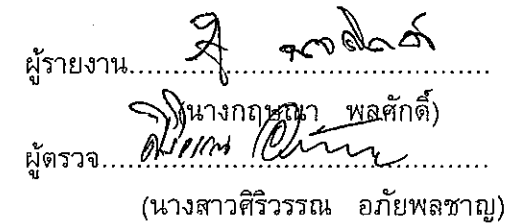 ผู้รายงาน........................................
(นางกฤษณา พลศักดิ์)
ผู้ตรวจ........................................
(นางสาวศิริวรรณ อภัยพลชาญ)